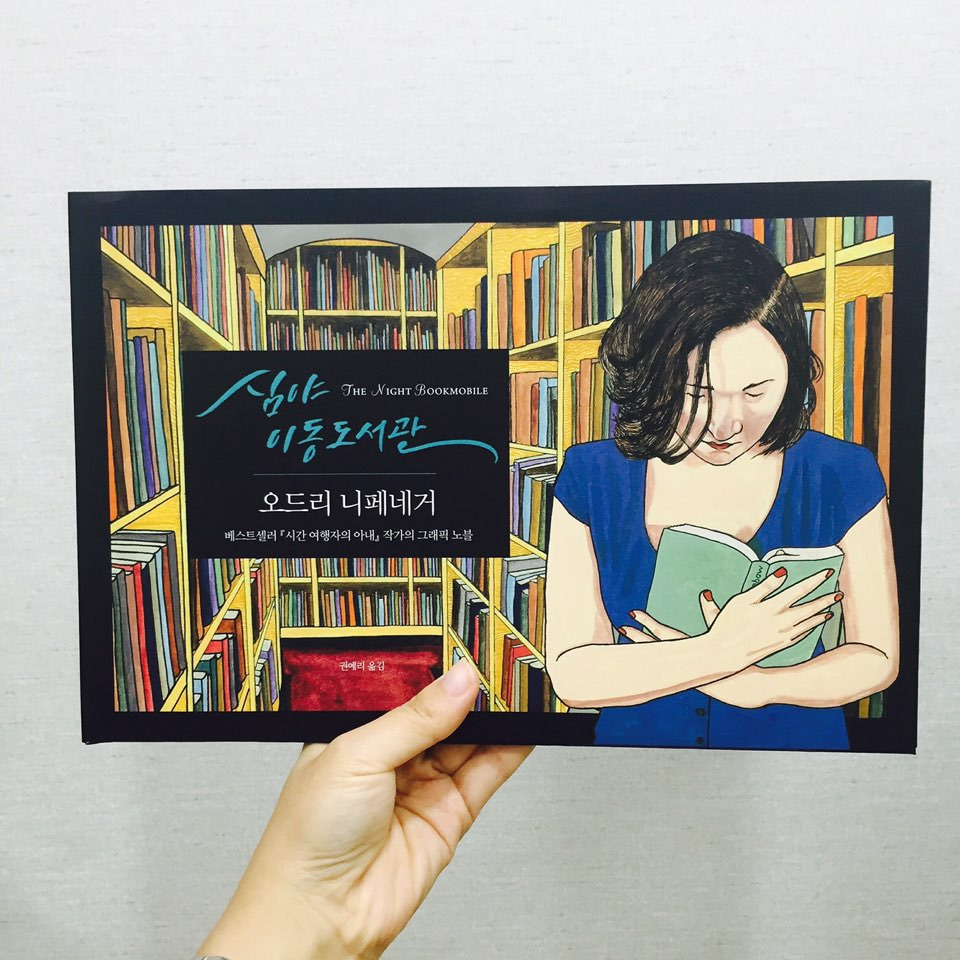 심야 THE NIGHT BOOKMOBILE
이동도서관
오드리 니페네거
베스트셀러 『시간 여행자의 아내』 작가의 그래픽 노블
권예리 옮김